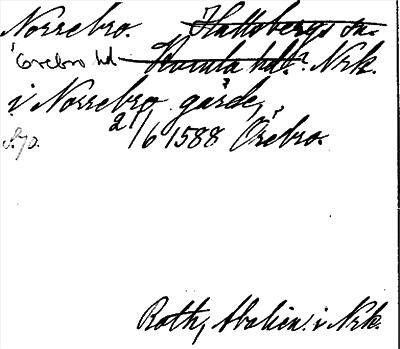 Norrebro. Hallsbergs sn.
Örebro hd. Kumla hd.? Nrk.
i Norrebro gärde,
21/6 1588 Örebro.
Roth, Abalien. i Nrk.